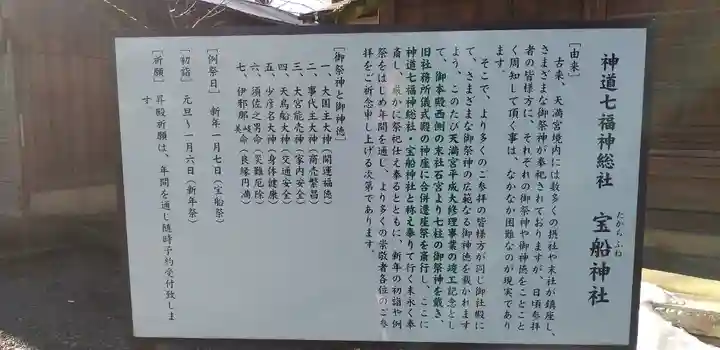 神道七福神総社　宝船神社
たから ふね
［由来］
古来、天満宮境内には数多くの摂社や末社が鎮座し、
さまざまな御祭神が奉祀されておりますが、日頃参拝
者の皆様方に、それぞれの御祭神や御神徳をことごと
く周知して頂く事は、なかなか困難なのが現実であり
ます。
そこで、より多くのご参拝の皆様方が同じ御社殿に
て、さまざまな御祭神の広範なる御神徳を戴かれます
よう、このたび天満宮平成大修理事業の竣工記念とし
て、御本殿西側の末社石宮より七柱の御祭神を戴き、
旧社務所儀式殿の神座に合併遷座祭を斎行し、ここに
神道七福神総社・宝船神社と称え奉りて行く末永く奉
斎し、厳かに祭祀仕え奉るとともに、新年の初詣や例
祭をはじめ年間を通し、より多くの崇敬者各位のご参
拝をご祈念申し上げる次第であります。
［御祭神と御神徳］
一、大国主大神（開運福徳）
二、事代主大神（商売繁昌）
三、大宮能売神（家内安全）
四、天鳥船大神（交通安全）
五、少彦名大神（身体健康）
六、須佐之男命（災難厄除）
七、伊邪那岐美命（良縁円満）
［例祭日］　新年一月七日（宝船祭）
［初詣］　元旦～一月六日（新年祭）
［祈願］　昇殿祈願は、年間を通じ随時予約受付致しま
す。